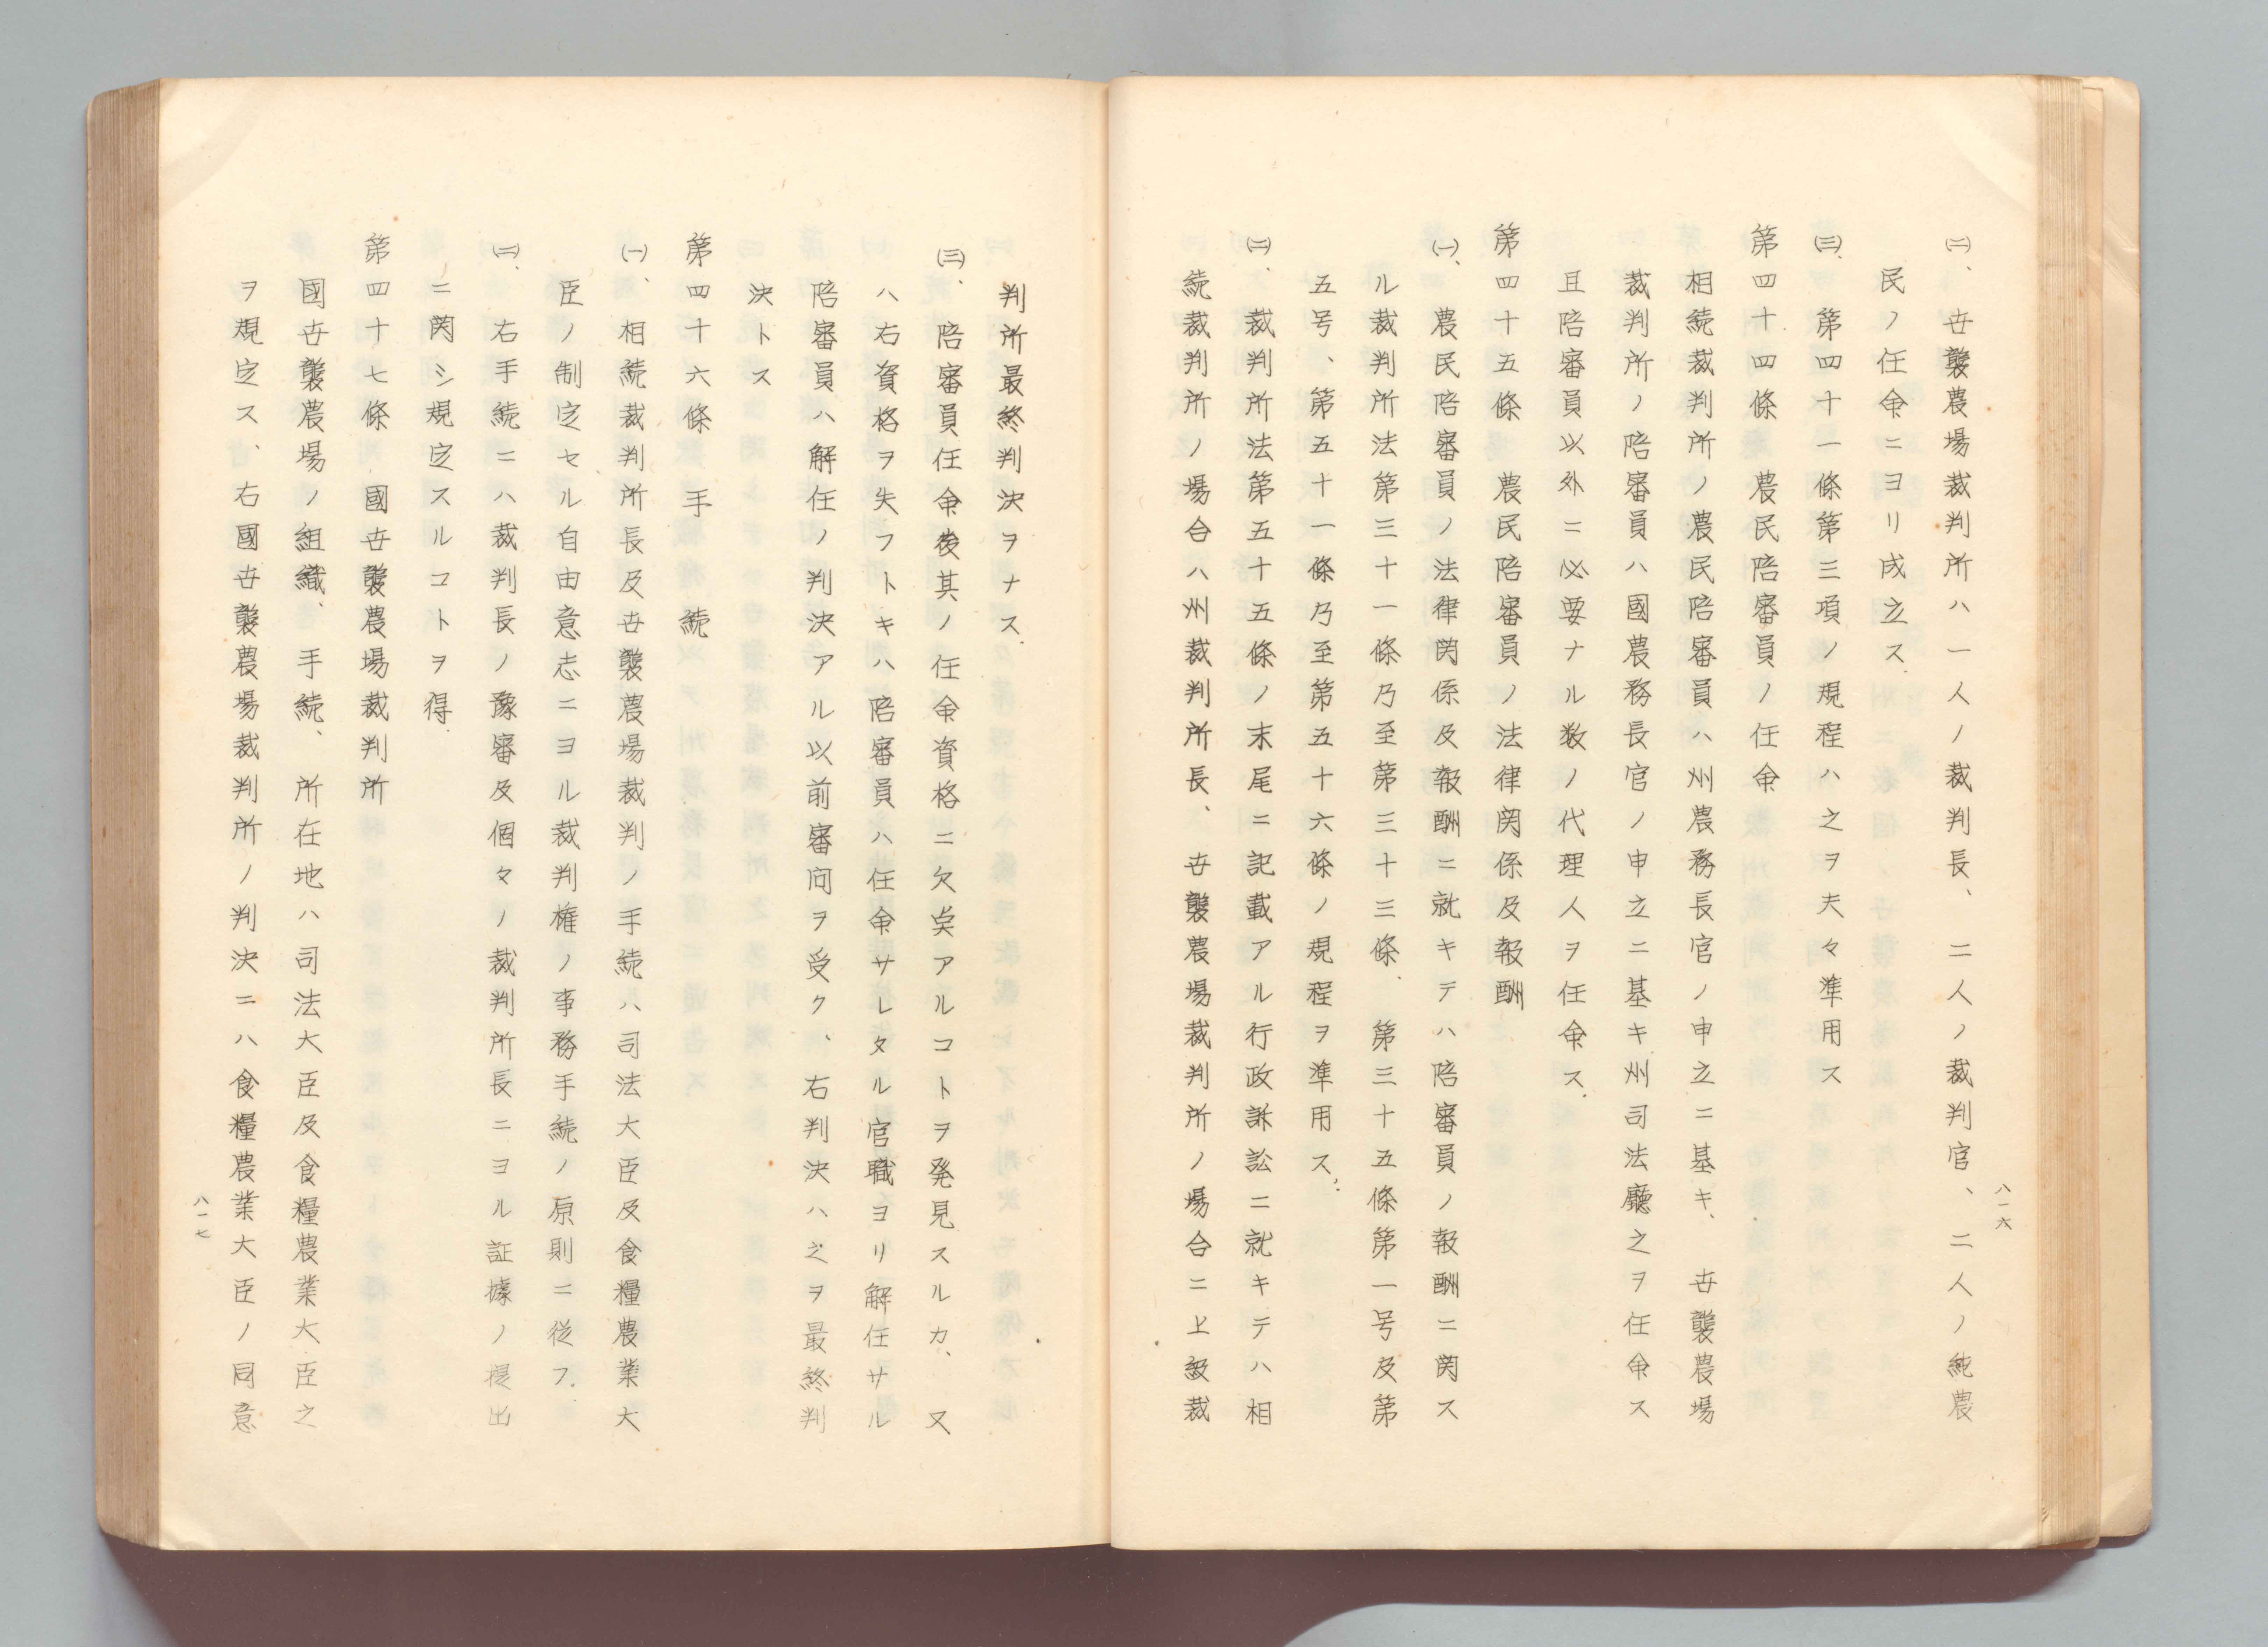 八一六
㈡、世襲農場裁判所ハ一人ノ裁判長、二人ノ裁判官、二人ノ純農
民ノ任命ニヨリ成立ス.
㈢、第四十一條第三項ノ規程ハ之ヲ夫々準用ス
第四十四條　農民陪審員ノ任命
相続裁判所ノ農民陪審員ハ州農務長官ノ申立ニ基キ、世襲農場
裁判所ノ陪審員ハ國農務長官ノ申立ニ基キ州司法廳之ヲ任命ス
且陪審員以外ニ必要ナル数ノ代理人ヲ任命ス.
第四十五條　農民陪審員ノ法律関係及報酬
㈠、農民陪審員ノ法律関係及報酬ニ就キテハ陪審員ノ報酬ニ関ス
ル裁判所法第三十一條乃至第三十三條.第三十五條第一号及第
五号、第五十一條乃至第五十六條ノ規程ヲ準用ス.
㈡、裁判所法第五十五條ノ末尾ニ記載アル行政訴訟ニ就キテハ相
続裁判所ノ場合ハ州裁判所長、世襲農場裁判所ノ場合ニ上級裁
判所最終判決ヲナス.
㈢、陪審員任命後其ノ任命資格ニ欠矣アルコトヲ発見スルカ、又
ハ右資格ヲ失フトキハ陪審員ハ任命サレタル官職ヨリ解任サル
陪審員ハ解任ノ判決アル以前審問ヲ受ク、右判決ハ之ヲ最終判
決トス
第四十六條　手　続
㈠、相続裁判所長及世襲農場裁判ノ手続ハ司法大臣及食糧農業大
臣ノ制定セル自由意志ニヨル裁判権ノ事務手続ノ原則ニ従フ.
㈡、右手続ニハ裁判長ノ豫審及個々ノ裁判所長ニヨル証據ノ提出
ニ関シ規定スルコトヲ得.
第四十七條　國世襲農場裁判所
國世襲農場ノ組織、手続、所在地ハ司法大臣及食糧農業大臣之
ヲ規定ス、右國世襲農場裁判所ノ判決ニハ食糧農業大臣ノ同意
八一七